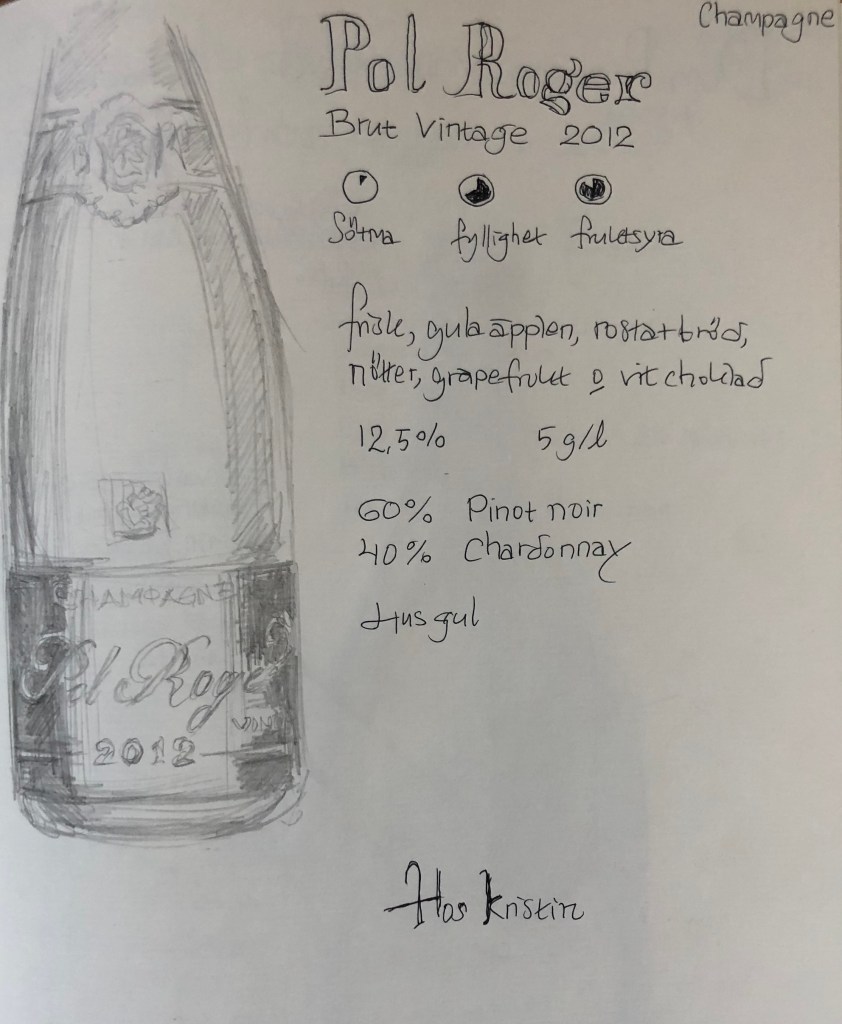 Champagne
Pol Roger
Brut Vintage 2012
Sötma fyllighet fruktsyra
frisk, gula äpplen, rostat bröd,
nötter, grapefrukt o vit choklad
12,5% 5 g/l
60% Pinot noir
40% Chardonnay
Ljus gul
CHAMPAGNE
Pol Roger
VIN
2012
Hos Kristin